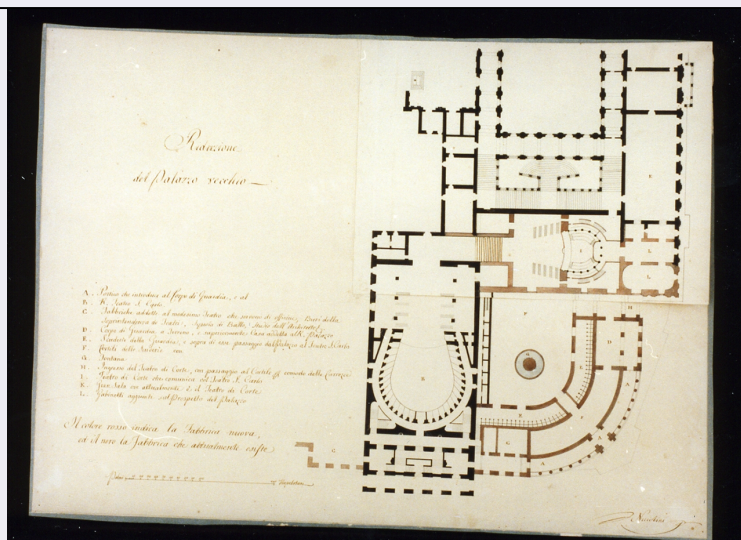 Riduzione
del Palazzo vecchio
A. Portico che introduce al Corpo di Guardia, e al
B. R. Teatro S. Carlo
C. Fabbriche addette al medesimo Teatro che servono di officine, Burò della
Soprintendenza de' Teatri, Scuole di Ballo, Studio dell' Architetto
D. Corpo di Guardia a Terreno, e superiormente Casa addetta al R. Palazzo
E. delle Guardie, e sopra di esse passaggio dal Palazzo al Teatro S. Carlo
F. Cortile delle
G. Fontana
H. Ingresso del Teatro di Corte, con passaggio al Cortile pel comodo delle Carrozze
I. Teatro di Corte che comunica col Teatro S. Carlo
K. Gran Sala ove attualmente è il Teatro di Corte
L. Gabinetti aggiunti sul Prospetto del Palazzo
Il colore rosso indica la Fabbrica nuova,
ed il nero la Fabbrica che attualmente esiste
Palmi
Niccolini